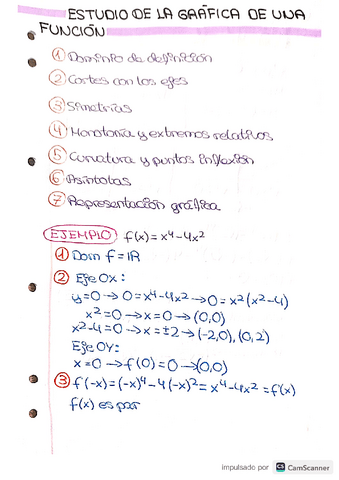 ESTUDIO DE LA GRÁFICA DE UNA
FUNCIÓN
① Dominio de definición
② Cortes con los ejes
③ Simetrías
④ Monotonía y extremos relativos
⑤ Curvatura y puntos inflexión
⑥ Asíntotas
⑦ Representación gráfica
EJEMPLO f(x) = x⁴-4x²
① Dom f = ℝ
② Eje OX:
y=0 → 0=x⁴-4x² → 0=x²(x²-4)
x²=0 → x=0 → (0,0)
x²-4=0 → x=±2 → (-2,0), (0,2)
Eje OY:
x=0 → f(0)=0 → (0,0)
③ f(-x)=(-x)⁴-4(-x)²= x⁴-4x² = f(x)
f(x) es par
impulsado por CS CamScanner